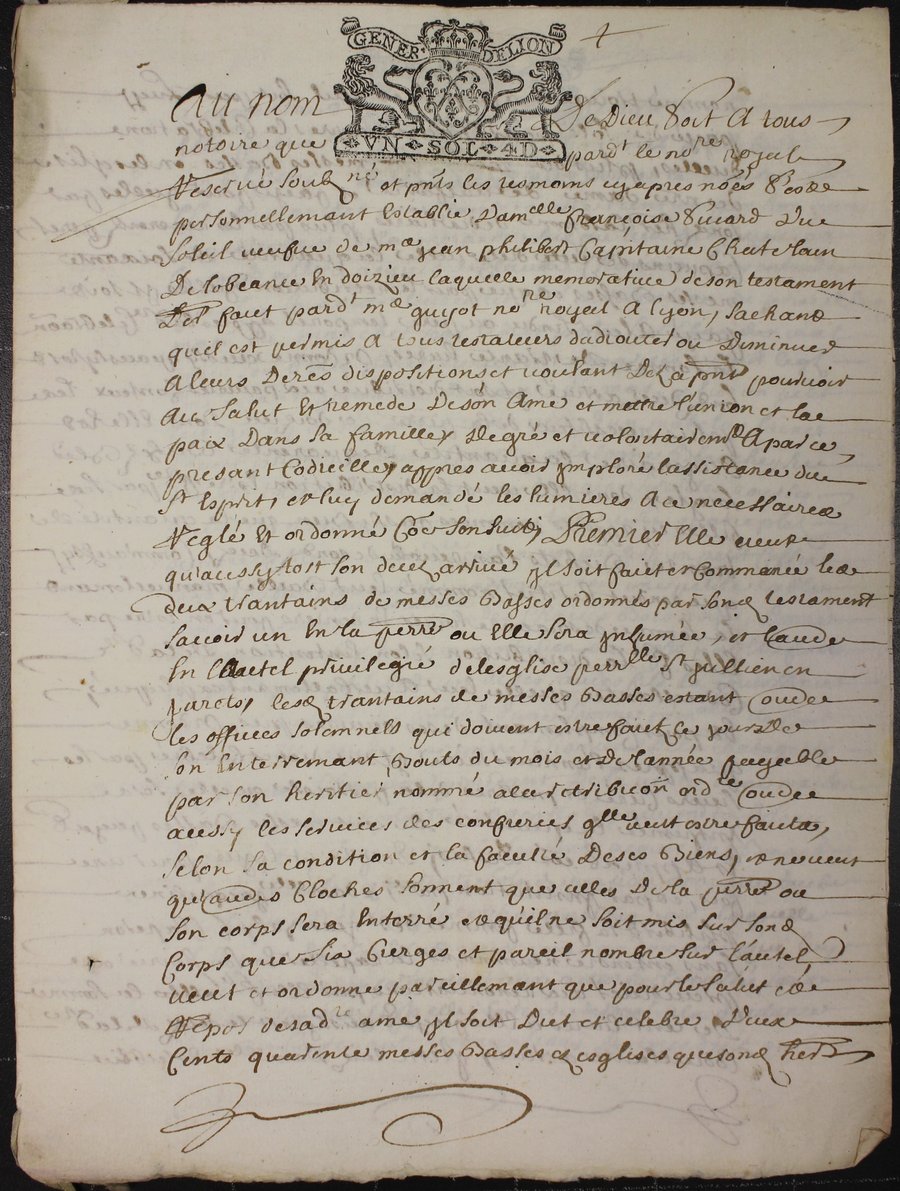 GENER DELION
VN · SOL · 4D ·
Au nom De Dieu soit A tous
notoire que pardt le nore royal
reservé soubne et pnts les tesmoins cyapres només s'este
personnellemant Establie Damelle françoise
soleil veufue de me jean philibert Capitaine Chatelain
De lobeance En doizieu laquelle memorative de son testament
faut pardt me guyot nore royal A lyon, sachant
quil est permis A tous testateurs dadiouter ou Diminuer
A leurs Deres dispositions et voulant Dez à pnt pourvoir
Au salut Et remede De son Ame et mettre l'union et la
paix Dans sa famille, De gré et volontairemt A par ce
presant Codicille, appres avoir jmploré lassistance du
St Esprit, et luy demandé les lumieres A ce necessaires
reglé Et ordonné Coe sensuit, Premier Elle veut
qu'aussytost son decez arrivé jl soit fait et commancé les
deux trantains de messes basses ordonnés par sond testament
sauoir un En la perre ou Elle sera jnhumée, et laude
En l'autel privilegié de lesglise perrelle st jullien en
jarets, lesd trantains de messes basses estant oudre
les offices solemnels qui doivent estre faut ce jour de
son Enterremant, bouts du mois et de lannée payable
par son heritier nommé a la retribuon ordre oudre
aussy les services des confreries qlle veut estre faits,
selon sa condition et la faculté De ses biens, et ne veut
qu'audes cloches sonnent que celles De la perre ou
son corps sera Enterré et qu'il ne soit mis sur sond
Corps que six Cierges et pareil nombre sur l'autel
veut et ordonne pareillemant que pour le salut et
repos de sad ame jl soit Dit et celebré Deux
Cents quarente messes basses es esglises que sond herr